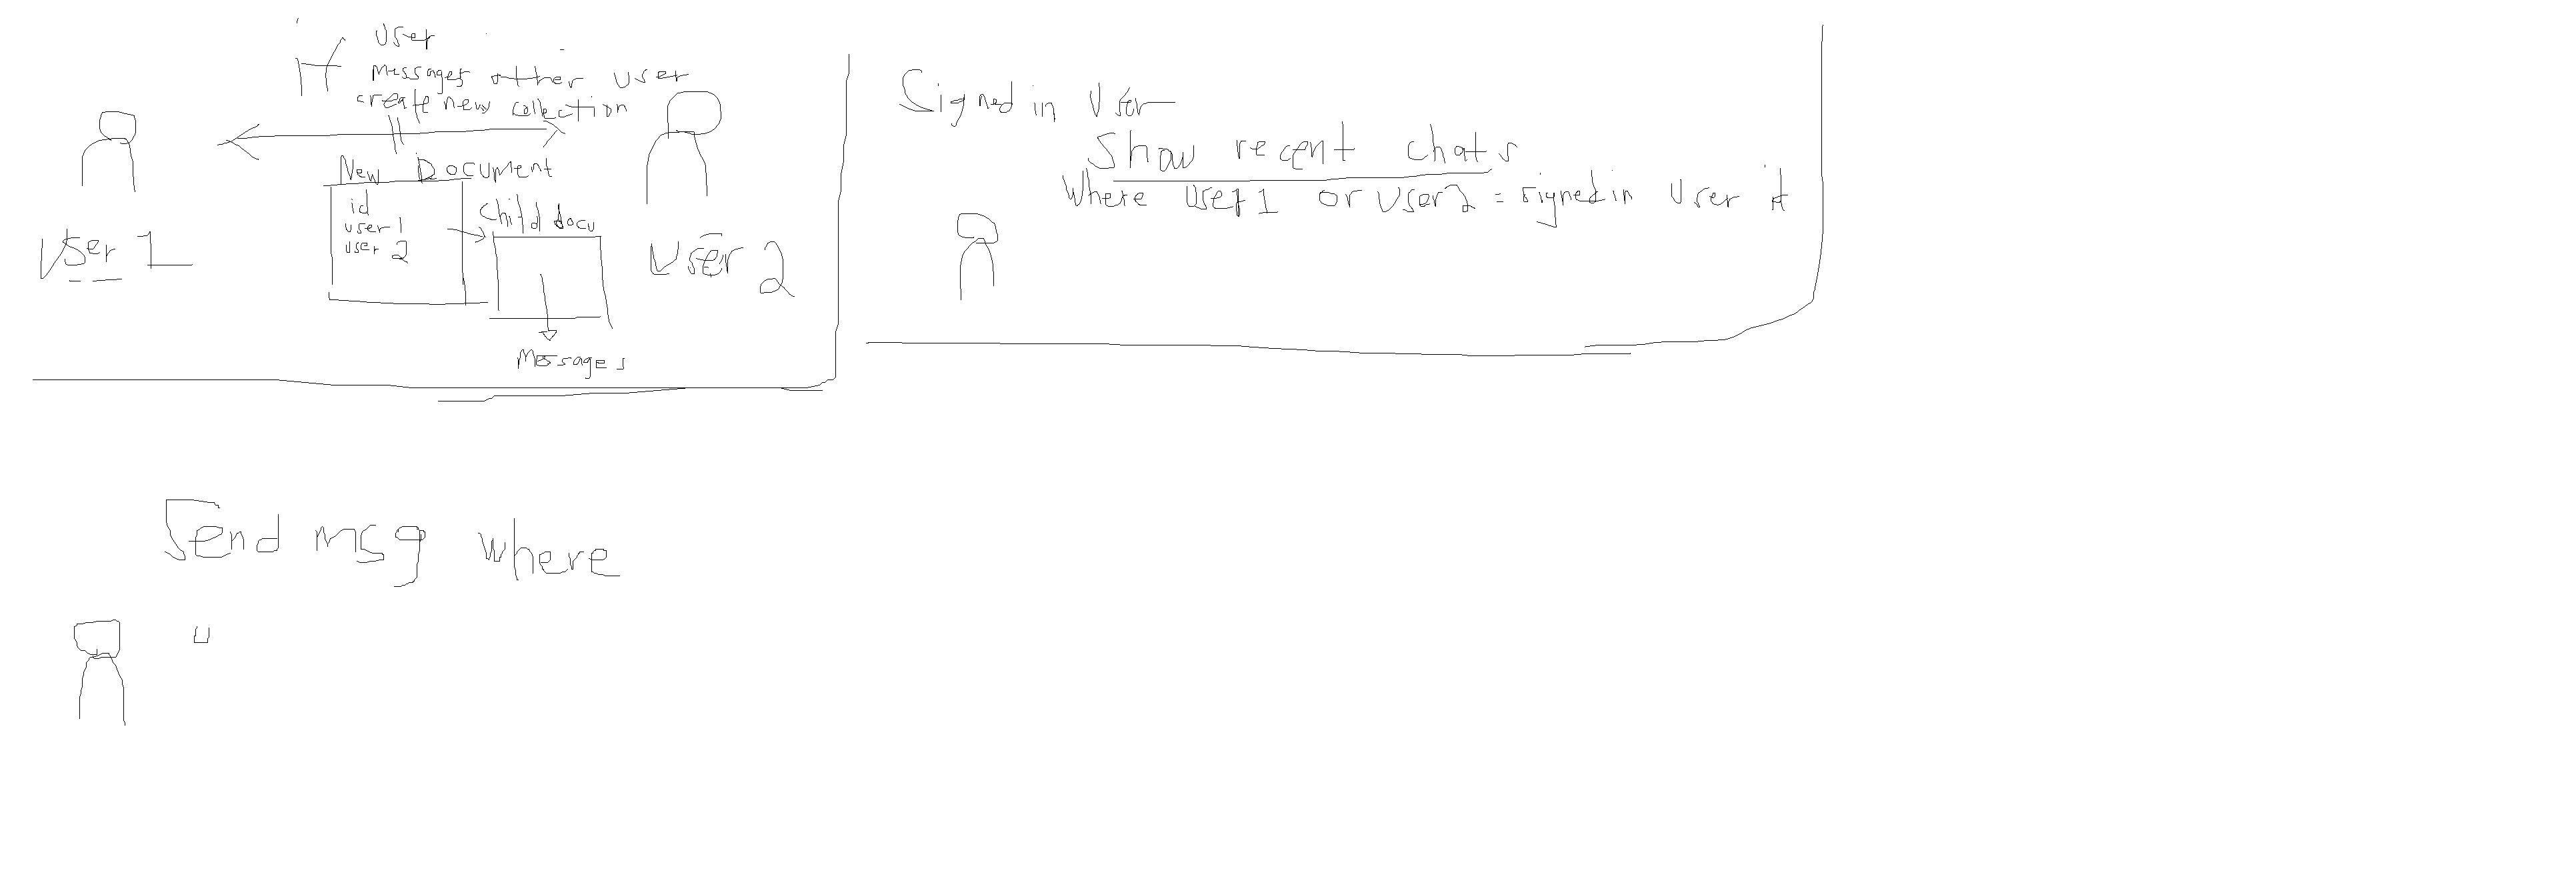 If user
messages other user
create new collection
New Document
id
user 1
user 2
Child docu
Messages
User 1
User 2
Signed in User
Show recent chats
Where user1 or user2 = signed in user id
Send msg where